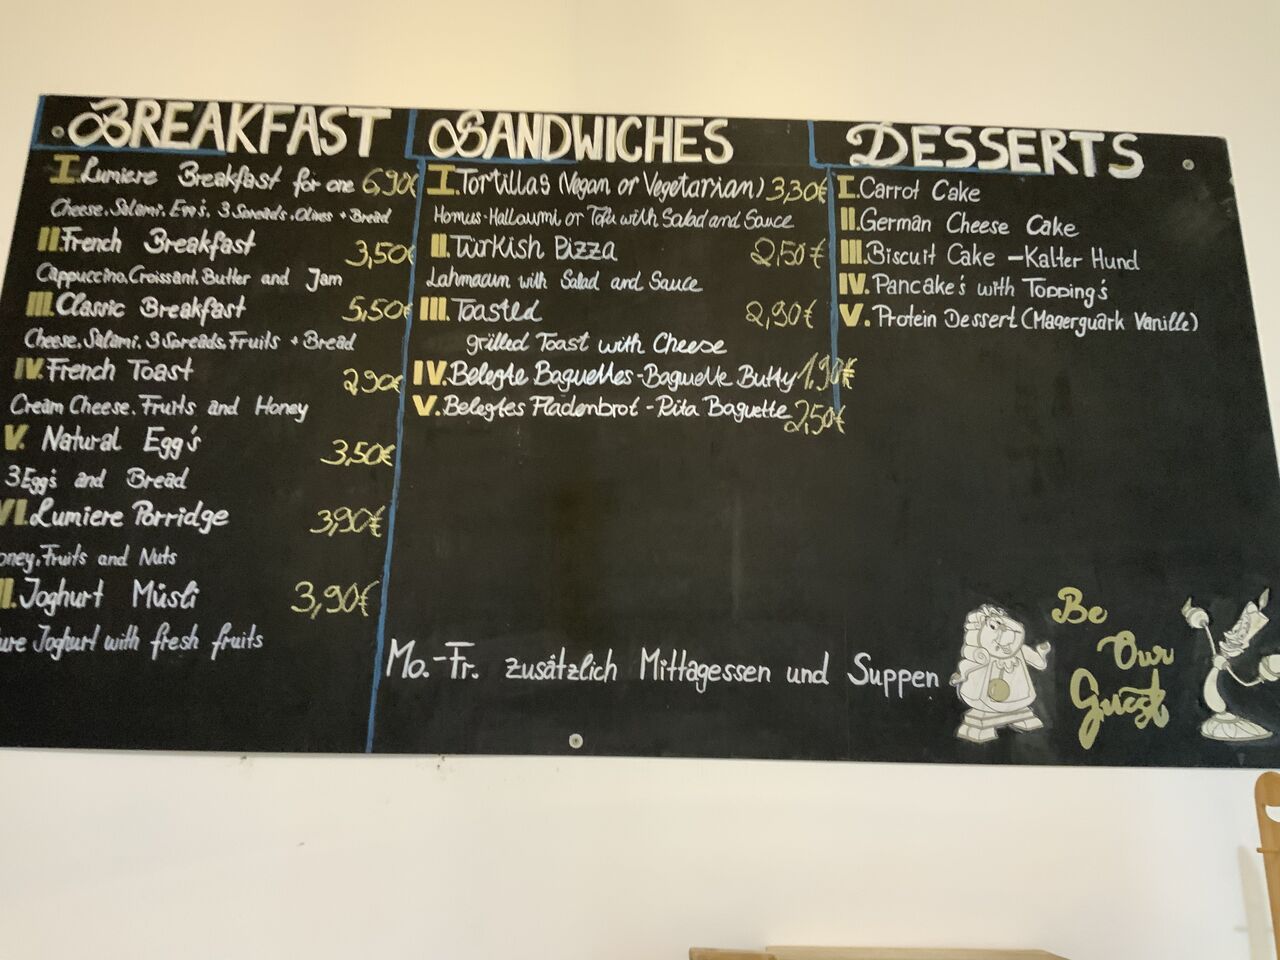 BREAKFAST
I. Lumiere Breakfast for one 6,90€
Cheese, Salami, Egg's, 3 Spreads, Olives + Bread
II. French Breakfast 3,50€
Cappuccino, Croissant, Butter and Jam
III. Classic Breakfast 5,50€
Cheese, Salami, 3 Spreads, Fruits + Bread
IV. French Toast 2,90€
Cream Cheese, Fruits and Honey
V. Natural Egg's 3,50€
3 Egg's and Bread
VI. Lumiere Porridge 3,90€
oney, Fruits and Nuts
II. Joghurt Müsli 3,90€
ure Joghurt with fresh fruits
SANDWICHES
I. Tortillas (Vegan or Vegetarian) 3,30€
Homus-Halloumi or Tofu with Salad and Sauce
II. Türkish Pizza 2,50€
Lahmacun with Salad and Sauce
III. Toasted 2,90€
grilled Toast with Cheese
IV. Belegte Baguettes - Baguette Butty 1,90€
V. Belegtes Fladenbrot - Pita Baguette 2,50€
DESSERTS
I. Carrot Cake
II. German Cheese Cake
III. Biscuit Cake - Kalter Hund
IV. Pancake's with Topping's
V. Protein Dessert (Magerquark Vanille)
Mo.-Fr. zusätzlich Mittagessen und Suppen
Be
Our
Guest